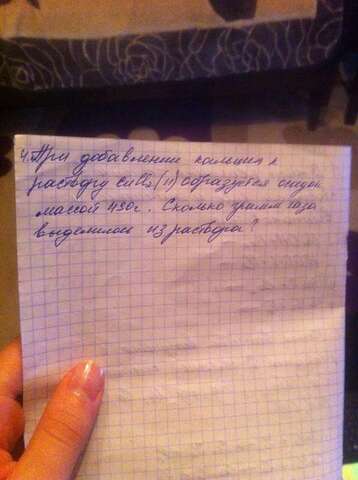 4. При добавлении кальция к
раствору CuCl₂(II) образуется осадок
массой 490г. Сколько грамм газа
выделилось из раствора?